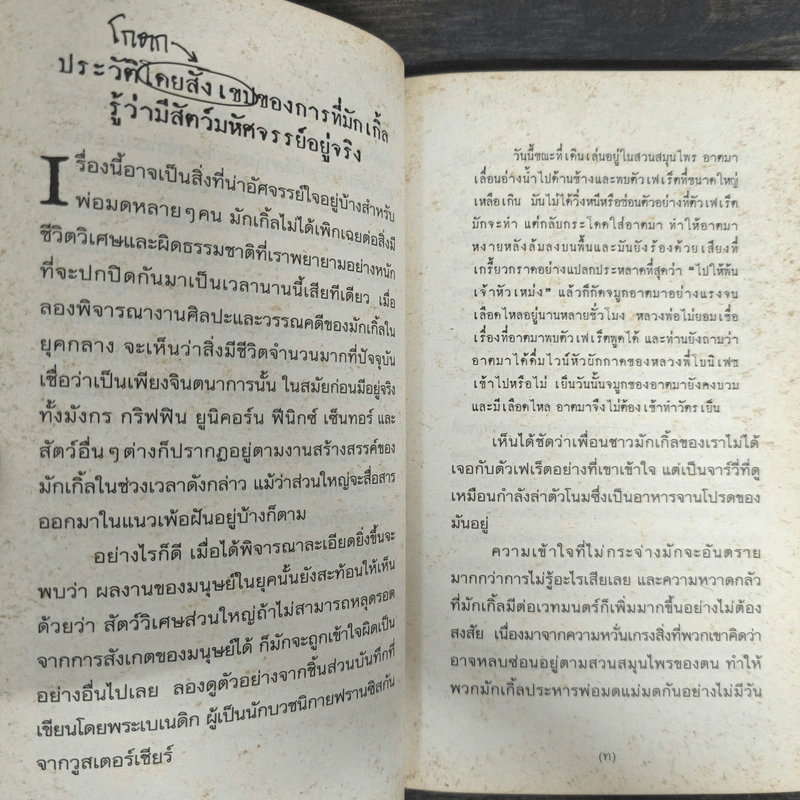 โกหก
ประวัติโดยสังเขปของการที่มักเกิ้ล
รู้ว่ามีสัตว์มหัศจรรย์อยู่จริง
เรื่องนี้อาจเป็นสิ่งที่น่าอัศจรรย์ใจอยู่บ้างสำหรับ
พ่อมดหลายๆคน มักเกิ้ลไม่ได้เพิกเฉยต่อสิ่งมี
ชีวิตวิเศษและผิดธรรมชาติที่เราพยายามอย่างหนัก
ที่จะปกปิดกันมาเป็นเวลานานนี้เสียทีเดียว เมื่อ
ลองพิจารณางานศิลปะและวรรณคดีของมักเกิ้ลใน
ยุคกลาง จะเห็นว่าสิ่งมีชีวิตจำนวนมากที่ปัจจุบัน
เชื่อว่าเป็นเพียงจินตนาการนั้น ในสมัยก่อนมีอยู่จริง
ทั้งมังกร กริฟฟิน ยูนิคอร์น ฟีนิกซ์ เซ็นทอร์ และ
สัตว์อื่นๆต่างก็ปรากฏอยู่ตามงานสร้างสรรค์ของ
มักเกิ้ลในช่วงเวลาดังกล่าว แม้ว่าส่วนใหญ่จะสื่อสาร
ออกมาในแนวเพ้อฝันอยู่บ้างก็ตาม
อย่างไรก็ดี เมื่อได้พิจารณาละเอียดยิ่งขึ้นจะ
พบว่า ผลงานของมนุษย์ในยุคนั้นยังสะท้อนให้เห็น
ด้วยว่า สัตว์วิเศษส่วนใหญ่ถ้าไม่สามารถหลุดรอด
จากการสังเกตของมนุษย์ได้ ก็มักจะถูกเข้าใจผิดเป็น
อย่างอื่นไปเลย ลองดูตัวอย่างจากชิ้นส่วนบันทึกที่
เขียนโดยพระเบเนดิก ผู้เป็นนักบวชนิกายฟรานซิสกัน
จากวูสเตอร์เชียร์
วันนี้ขณะที่เดินเล่นอยู่ในสวนสมุนไพร อาตมา
เลื่อนอ่างน้ำไปด้านข้างและพบตัวเฟเร็ตที่ขนาดใหญ่
เหลือเกิน มันไม่ได้วิ่งหนีหรือซ่อนตัวอย่างที่ตัวเฟเร็ต
มักจะทำ แต่กลับกระโดดใส่อาตมา ทำให้อาตมา
หงายหลังล้มลงบนพื้นและมันยังร้องด้วยเสียงที่
เกรี้ยวกราดอย่างแปลกประหลาดที่สุดว่า “ไปให้พ้น
เจ้าหัวเหม่ง” แล้วก็กัดจมูกอาตมาอย่างแรงจน
เลือดไหลอยู่นานหลายชั่วโมง หลวงพ่อไม่ยอมเชื่อ
เรื่องที่อาตมาพบตัวเฟเร็ตพูดได้ และท่านยังถามว่า
อาตมาได้ดื่มไวน์หัวผักกาดของหลวงพี่โบนิเฟซ
เข้าไปหรือไม่ เย็นวันนั้นจมูกของอาตมายังคงบวม
และมีเลือดไหล อาตมาจึงไม่ต้องเข้าทำวัตรเย็น
เห็นได้ชัดว่าเพื่อนชาวมักเกิ้ลของเราไม่ได้
เจอกับตัวเฟเร็ตอย่างที่เขาเข้าใจ แต่เป็นจาร์วี่ที่ดู
เหมือนกำลังล่าตัวโนมซึ่งเป็นอาหารจานโปรดของ
มันอยู่
ความเข้าใจที่ไม่กระจ่างมักจะอันตราย
มากกว่าการไม่รู้อะไรเสียเลย และความหวาดกลัว
ที่มักเกิ้ลมีต่อเวทมนตร์ก็เพิ่มมากขึ้นอย่างไม่ต้อง
สงสัย เนื่องมาจากความหวั่นเกรงสิ่งที่พวกเขาคิดว่า
อาจหลบซ่อนอยู่ตามสวนสมุนไพรของตน ทำให้
พวกมักเกิ้ลประหารพ่อมดแม่มดกันอย่างไม่มีวัน
(ท)